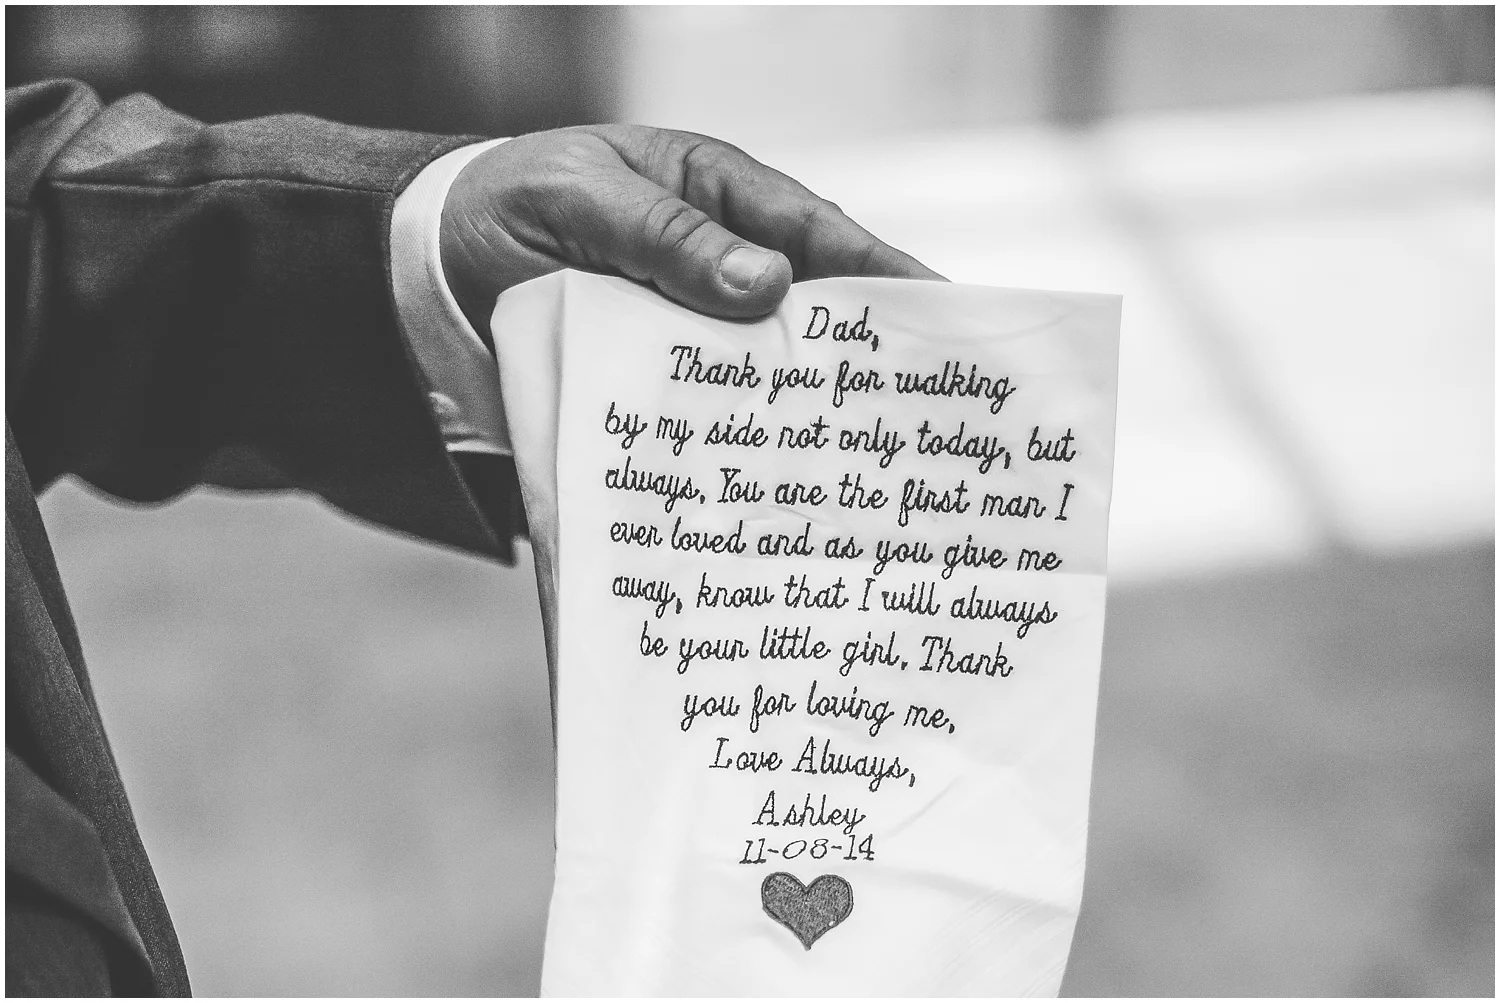 Dad,
Thank you for walking
by my side not only today, but
always. You are the first man I
ever loved and as you give me
away, know that I will always
be your little girl. Thank
you for loving me.
Love Always,
Ashley
11-08-14